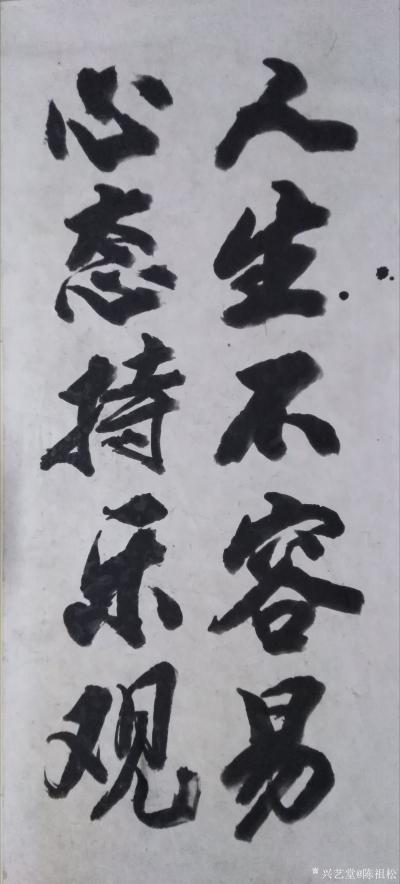 人生不容易
心态持乐观
兴艺堂@陈祖松